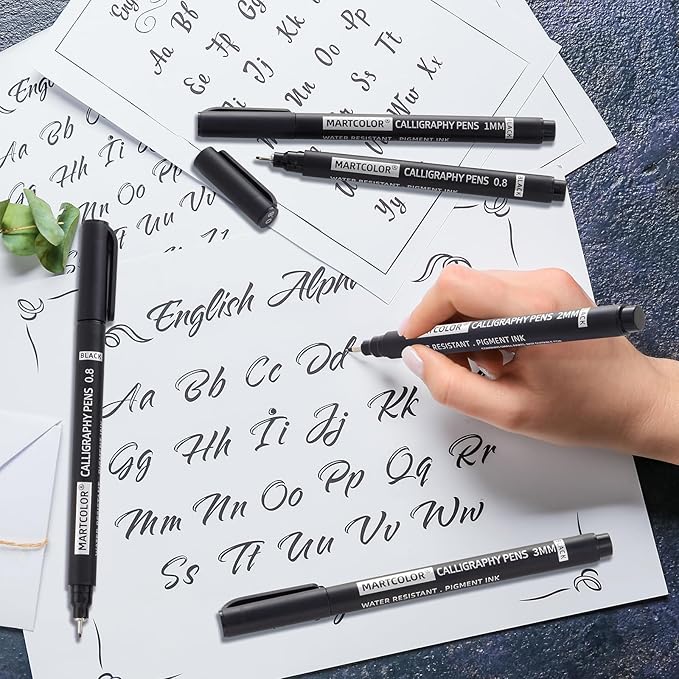 English
Aa Bb
Ee Ff Kk
Ij Nn
Oo Pp Tt
Ss Xx
Ww
Yy
MARTCOLOR® CALLIGRAPHY PENS 1MM BLACK
WATER RESISTANT . PIGMENT INK
MARTCOLOR® CALLIGRAPHY PENS 0.8 BLACK
WATER RESISTANT . PIGMENT INK
Eng
Aa Bb
Hh Ii
Nn Oo
Uu Vv
MARTCOLOR® CALLIGRAPHY PENS 0.8 BLACK
English Alph
Aa Bb Cc Dd
CALLIGRAPHY PENS 2MM BLACK
RESISTANT . PIGMENT INK
Gg Hh Ii Jj Kk
Mm Nn Oo Pp Qq Rr
Ss Tt Uu Vv Ww
MARTCOLOR® CALLIGRAPHY PENS 3MM BLACK
WATER RESISTANT . PIGMENT INK